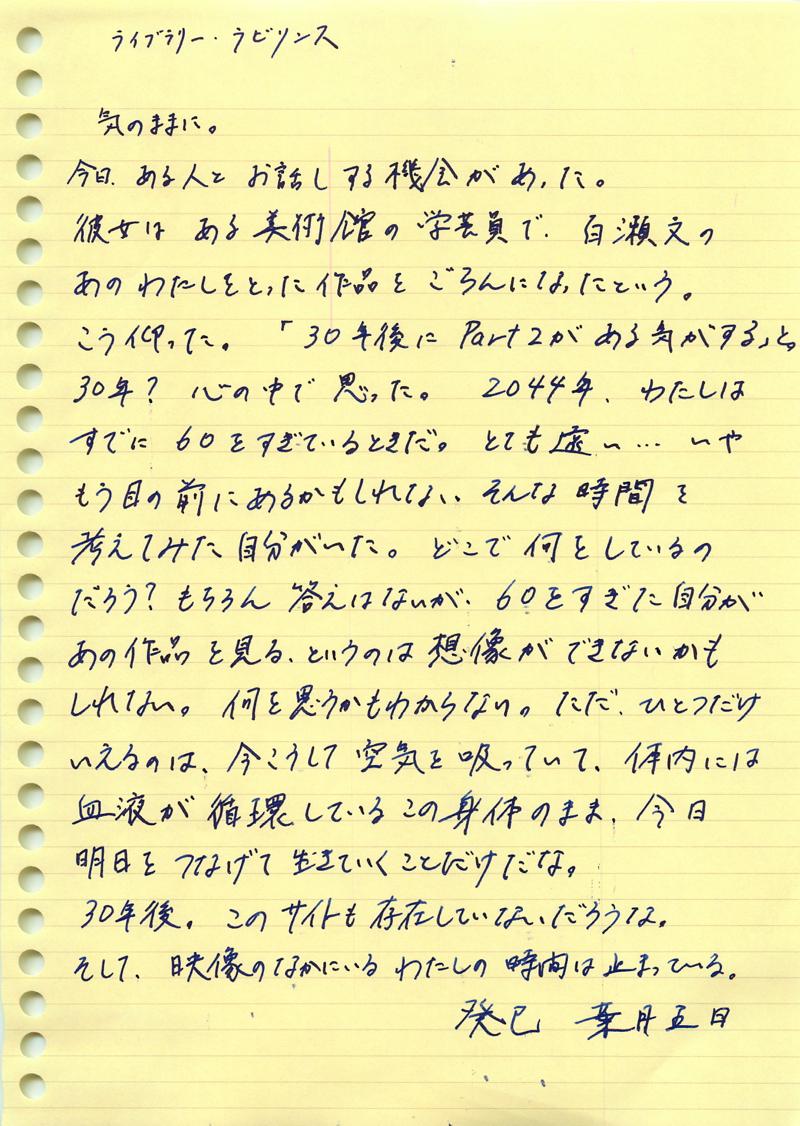 ライブラリー・ラビリンス
気のままに。
今日、ある人とお話しする機会があった。
彼女はある美術館の学芸員で、百瀬文の
あのわたしをとった作品をごろんになったという。
こう仰った。「30年後にPart2がある気がする」と。
30年?心の中で思った。2044年、わたしは
すでに60をすぎているときだ。とても遠い…いや
もう目の前にあるかもしれない、そんな時間を
考えてみた自分がいた。どこで何をしているの
だろう?もちろん答えはないが、60をすぎた自分が
あの作品を見る、というのは想像ができないかも
しれない。何を思うかもわからない。ただ、ひとつだけ
いえるのは、今こうして空気を吸っていて、体内には
血液が循環しているこの身体のまま、今日
明日をつなげて生きていくことだけだな。
30年後。このサイトも存在していないだろうな。
そして、映像のなかにいるわたしの時間は止まっている。
癸巳 葉月五日